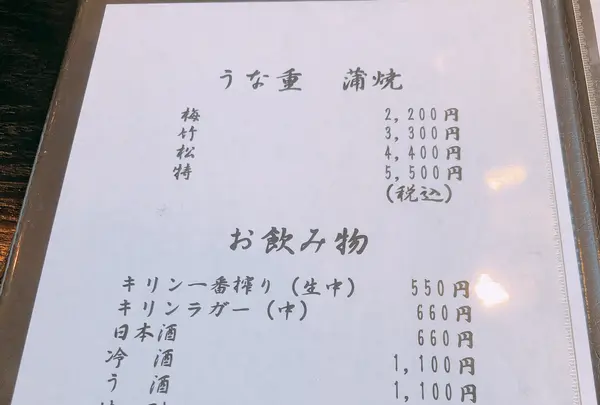 うな重 蒲焼
梅 2,200円
竹 3,300円
松 4,400円
特 5,500円
(税込)
お飲み物
キリン一番搾り (生中) 550円
キリンラガー (中) 660円
日本酒 660円
冷 酒 1,100円
う 酒 1,100円